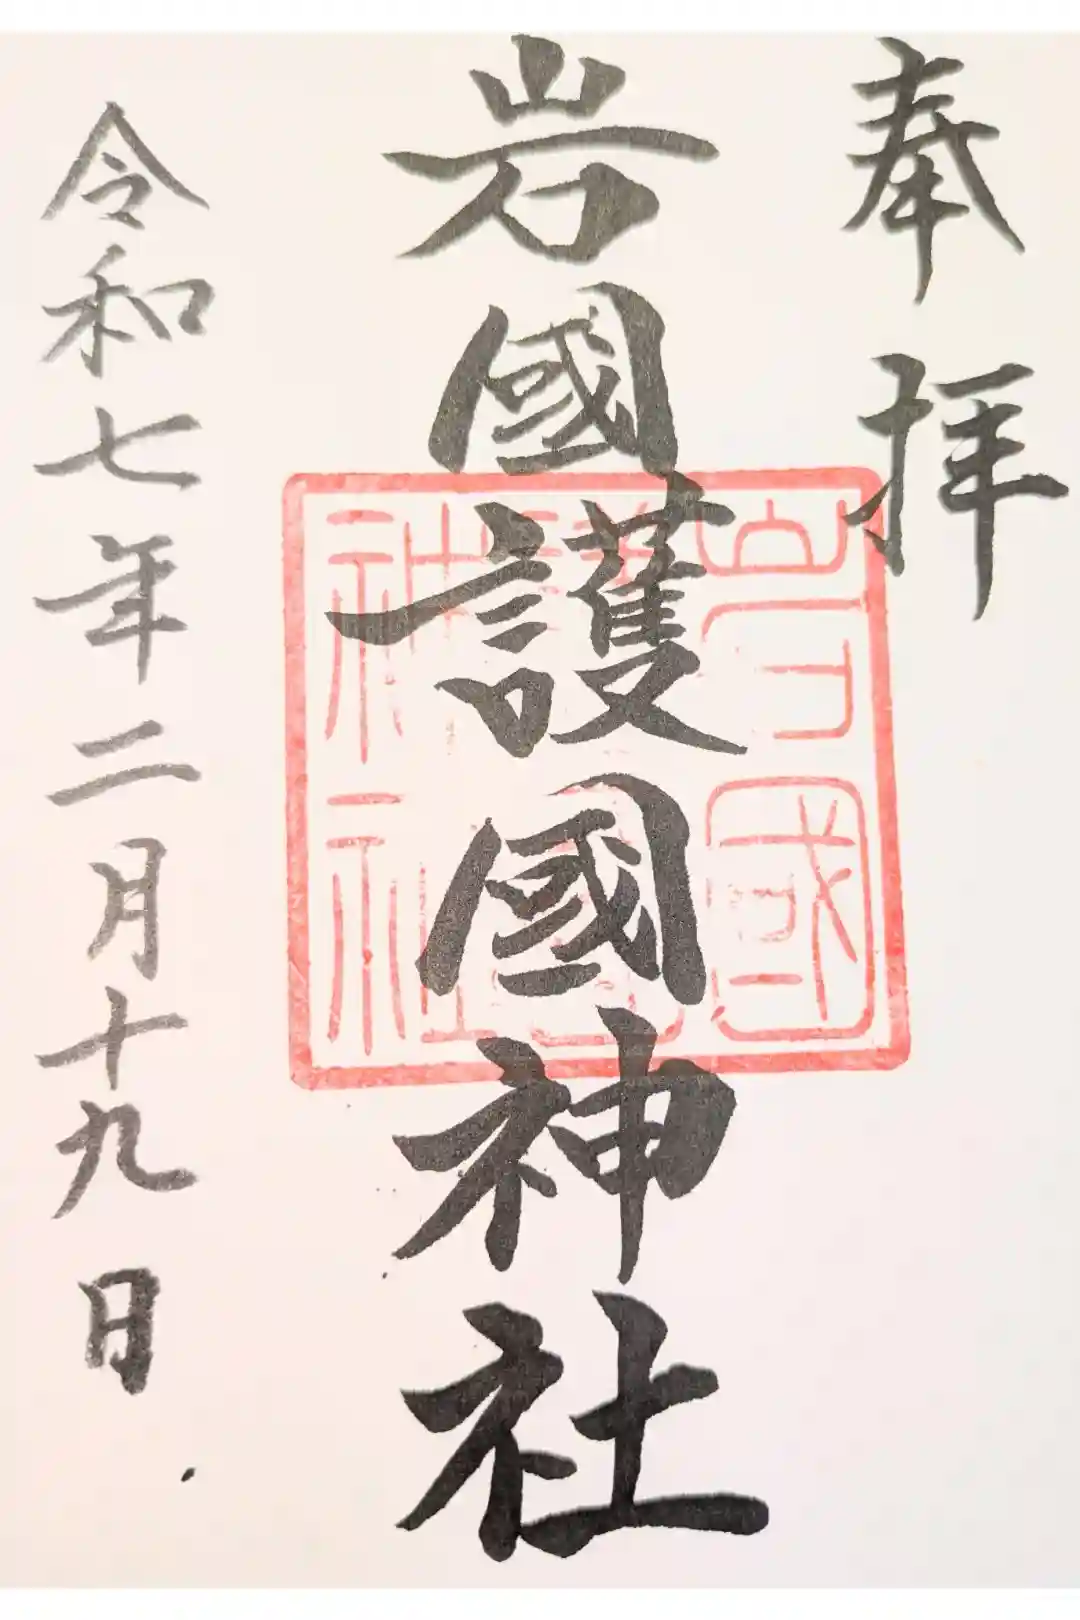 奉拝
岩國護國神社
岩國
護國
神社
令和七年二月十九日